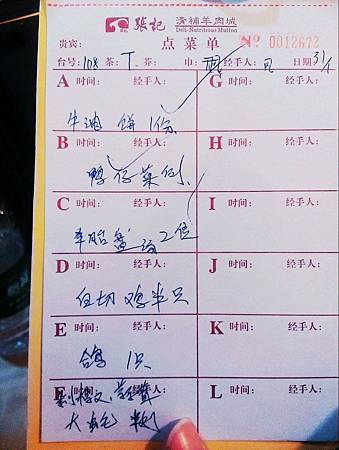 張記 清補羊肉城
Deli-Nutritious Mutton
贵宾: 点菜单 № 0012672
台号: 108 茶: T 芥: 巾: 经手人: 日期 31/1
A 时间: 经手人: G 时间: 经手人:
牛油 饼 1份
B 时间: 经手人: H 时间: 经手人:
鸭仔菜例
C 时间: 经手人: I 时间: 经手人:
2位
D 时间: 经手人: J 时间: 经手人:
白切鸡半只
E 时间: 经手人: K 时间: 经手人:
鸽 1只
L 时间: 经手人:
大